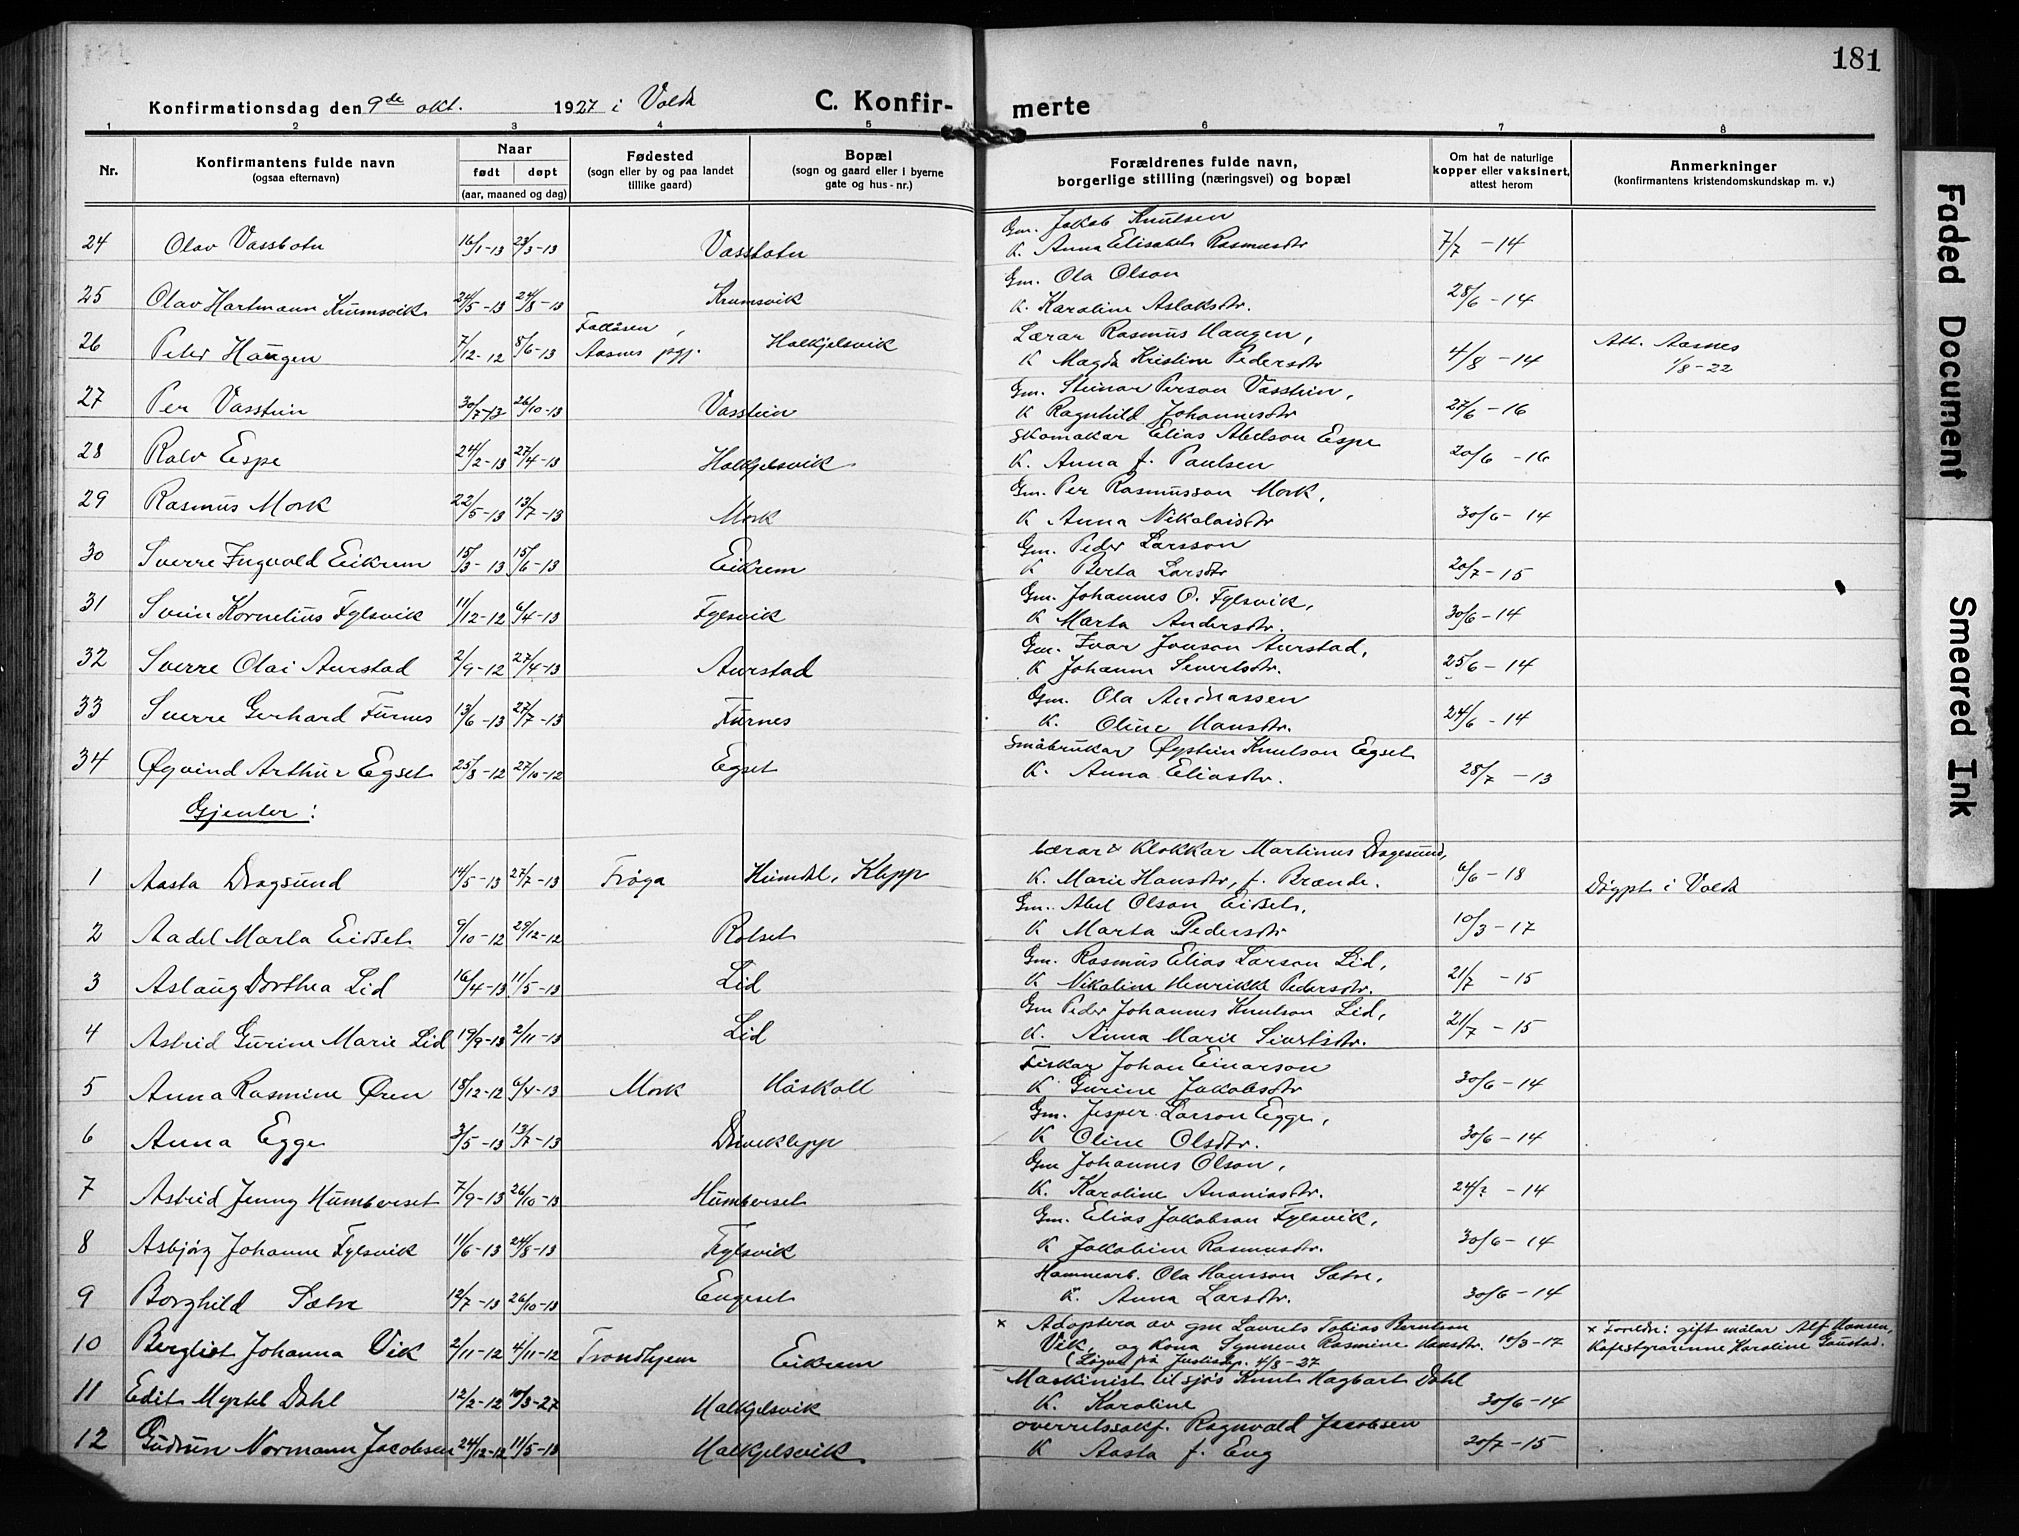 181
Konfirmationsdag den 9de okt. 1927 i Volda C. Konfir- merte
1 2 3 4 5 6 7 8
Nr. Konfirmantens fulde navn (ogsaa efternavn) Naar født døpt (aar, maaned og dag) Fødested (sogn eller by og paa landet tillike gaard) Bopæl (sogn og gaard eller i byerne gate og hus-nr.) Forældrenes fulde navn, borgerlige stilling (næringsvei) og bopæl Om hat de naturlige kopper eller vaksinert, attest herom Anmerkninger (konfirmantens kristendomskundskap m. v.)
24 Olav Vassbotn 16/1-13 23/3-13 Vassbotn Gm. Jakob Knutsen
K. Anna Elisabet Rasmusdtr 7/7 -14
25 Olav Hartmann Krumsvik 24/5-13 24/8-13 Krumsvik Gm. Ola Olson
K. Karoline Aslaksdtr. 28/6-14
26 Peter Haugen 7/12-12 8/6-13 Aasnes pgj. Halkjelsvik Lærar Rasmus Haugen,
K Magda Kristine Pedersdtr 4/8-14 Att. Aasnes
1/8-22
27 Per Vasstein 30/7-13 26/10-13 Vasstein Gm. Steinar Person Vasstein,
K Ragnhild Johannesdtr 27/6-16
28 Ralv Espe 24/2-13 27/4-13 Halkjelsvik Skomakar Elias Abelson Espe
K. Anna f. Paulsen 20/6-16
29 Rasmus Mork 22/5-13 13/7-13 Mork Gm. Per Rasmusson Mork,
K Anna Nikolaisdtr 30/6-14
30 Sverre Ingvald Eikrem 15/3-13 15/6-13 Eikrem Gm. Peder Larsson
K Berta Larsdtr 20/7-15
31 Svein Kornelius Fylsvik 11/12-12 6/4-13 Fylsvik Gm. Johannes O. Fylsvik,
K Marta Andersdtr. 30/6-14
32 Sverre Olai Aurstad 2/9-12 27/4-13 Aurstad Gm. Ivar Jonson Aurstad,
K Johanne Sivertsdtr. 25/6-14
33 Sverre Gerhard Furnes 13/6-13 27/7-13 Furnes Gm. Ola Andreassen
K. Oline Hansdtr. 24/6-14
34 Øyvind Arthur Egset 25/8-12 27/10-12 Egset Småbrukar Øystein Knutson Egset
K. Anna Eliasdtr. 28/7-13
Gjenter:
1 Aasta Dragsund 14/5-13 27/7-13 Frøga Humdal, Klepp Lærar & Klokkar Martinus Dragesund,
K. Marie Hansdtr, f. Brande. 6/6-18 Døypt i Volda
2 Aadel Marta Eidset 9/10-12 29/12-12 Rotset Gm. Abel Olson Eidset,
K Marta Pedersdtr 10/3-17
3 Aslaug Dorthea Lid 16/4-13 11/5-13 Lid Gm. Rasmus Elias Larson Lid,
K Nikoline Henrikke Pedersdtr. 21/7-15
4 Astrid Gurine Marie Lid 19/9-13 2/11-13 Lid Gm Peder Johannes Knutson Lid,
K. Anna Marie Sivertsdtr. 21/7-15
5 Anna Rasmine Øren 18/12-12 6/4-13 Mork Håskoll Fiskar Johan Einarson
K Gurine Jakobsdtr 30/6-14
6 Anna Egge 3/5-13 13/7-13 Driveklepp Gm. Jesper Larson Egge,
K Oline Olsdtr. 30/6-14
7 Astrid Jenny Humberset 7/9-13 26/10-13 Humberset Gm Johannes Olson,
K. Karoline Ananiasdtr. 24/? -14
8 Asbjørg Johanne Fylsvik 11/6-13 24/8-13 Fylsvik Gm. Elias Jakobson Fylsvik,
K Jakobine Rasmusdtr. 30/6-14
9 Borghild Sætre 12/7-13 26/10-13 Engeset Hamnearb. Ola Hansson Sætre,
K. Anna Larsdtr. 30/6-14
10 Bergliot Johanna Vik 2/11-12 4/11-12 Trondhjem Eikrem × Adoptera av gm Laurits Tobias Berntson
Vik, og kona Synneve Rasmine Hansdtr. 10/3-17
4/8-27 × Foreldr: gift målar Alf Hansen,
Karoline Gaustad.
11 Edit Myrtel Dahl 12/2-12 10/3-27 Halkjelsvik Maskinist til sjøs Knut Hagbart Dahl
K. Karoline 30/6-14
12 Gudrun Normann Jacobsen 24/12-12 11/5-13 Halkjelsvik Overretssakf. Ragnvald Jacobsen
K Aasta f. Eng 20/7-15
Faded Document
Smeared Ink